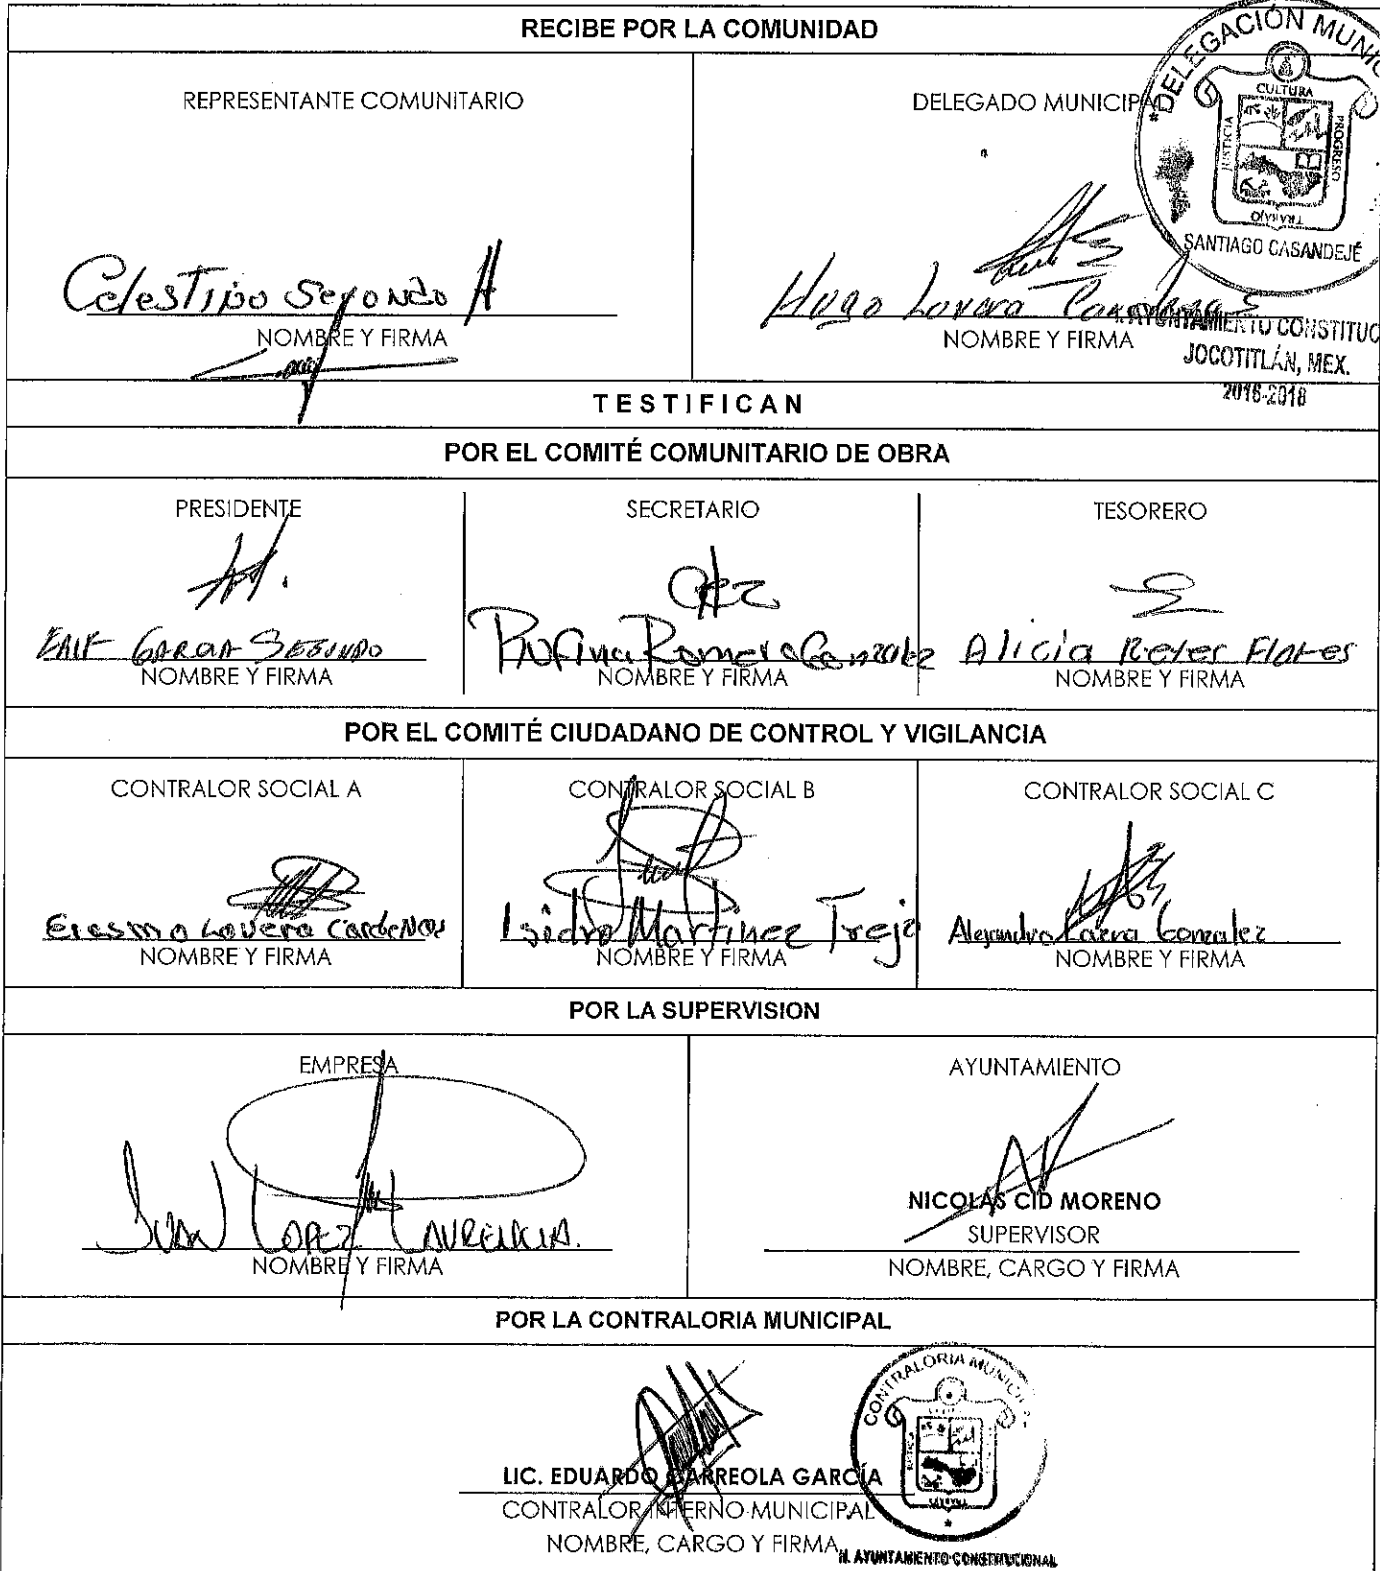 RECIBE POR LA COMUNIDAD
REPRESENTANTE COMUNITARIO
Celestino Segondo H
NOMBRE Y FIRMA
DELEGADO MUNICIPAL
Hugo Lovera
NOMBRE Y FIRMA
*DELEGACIÓN MUNIC
CULTURA
JUSTICIA
PROGRESO
TRABAJO
SANTIAGO CASANDEJÉ
AYUNTAMIENTO CONSTITUC
JOCOTITLÁN, MEX.
2016-2018
TESTIFICAN
POR EL COMITÉ COMUNITARIO DE OBRA
PRESIDENTE
GARCIA SEGUNDO
NOMBRE Y FIRMA
SECRETARIO
Rufina Romero Gonzalez
NOMBRE Y FIRMA
TESORERO
Alicia Reyes Flores
NOMBRE Y FIRMA
POR EL COMITÉ CIUDADANO DE CONTROL Y VIGILANCIA
CONTRALOR SOCIAL A
Erasmo Lovera Cardenas
NOMBRE Y FIRMA
CONTRALOR SOCIAL B
Isidro Martinez Trejo
NOMBRE Y FIRMA
CONTRALOR SOCIAL C
Alejandro Gonzalez
NOMBRE Y FIRMA
POR LA SUPERVISION
EMPRESA
JUAN LOPEZ LAURENCIA.
NOMBRE Y FIRMA
AYUNTAMIENTO
NICOLAS CID MORENO
SUPERVISOR
NOMBRE, CARGO Y FIRMA
POR LA CONTRALORIA MUNICIPAL
LIC. EDUARDO CARREOLA GARCÍA
CONTRALOR INTERNO MUNICIPAL
NOMBRE, CARGO Y FIRMA
CONTRALORIA MUNICIPAL
H. AYUNTAMIENTO CONSTITUCIONAL